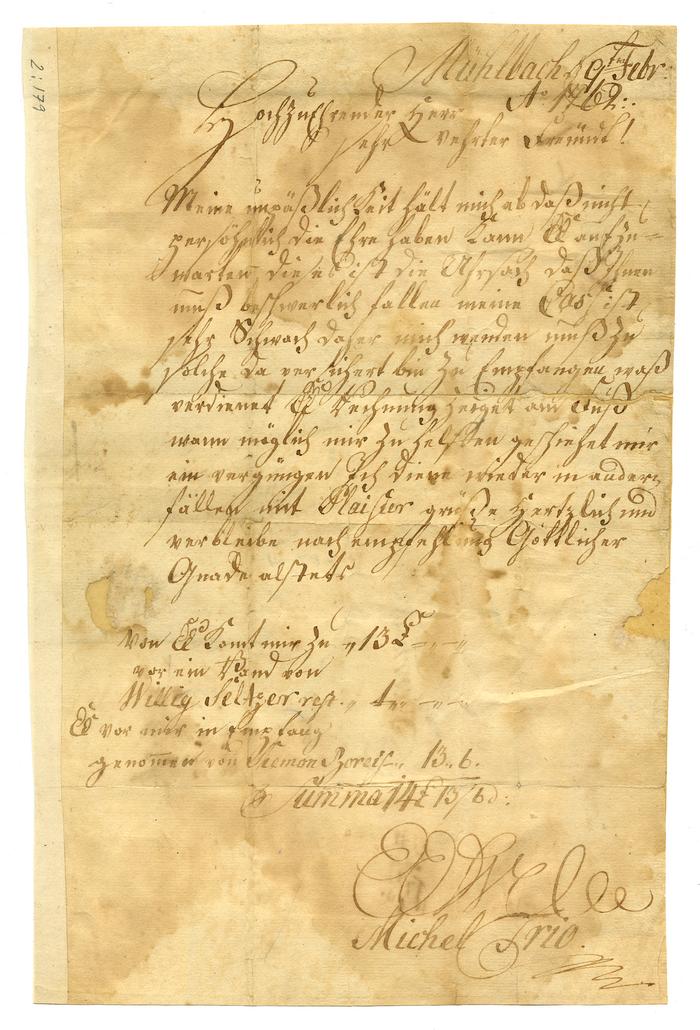 2:179
Mühlbach d 9ten Febr:
Ao 1762:.
HochzuEhrender Herr
sehr wehrter Freündt!
Meine unpäßlichkeit hält mich ab daß nicht
persöhnlich die Ehre haben kann auf zu=
warten dieses ist die Uhrsach daß Ihnen
muß beschwerlich fallen meine Cass ist
sehr Schwach daher mich wenden muß zu
solche da versichert bin zu Empfangen waß
verdienet Rechnung zeiget am Fuß
wann möglich mir zu helffen geschiehet mir
ein vergnügen Ich diene wieder in andern
fällen mit Plaisier grüße Hertzlich und
verbleibe nach empfehlung Göttlicher
Gnade alstets
von komt mir zu " 13 £ - - -
vor ein Band von
Willig Seltzer rest. "
vor mir in Empfang
genommen von Siemon 13 " 6.
Summa 14 £ 13/6 d:
Michel Frio.